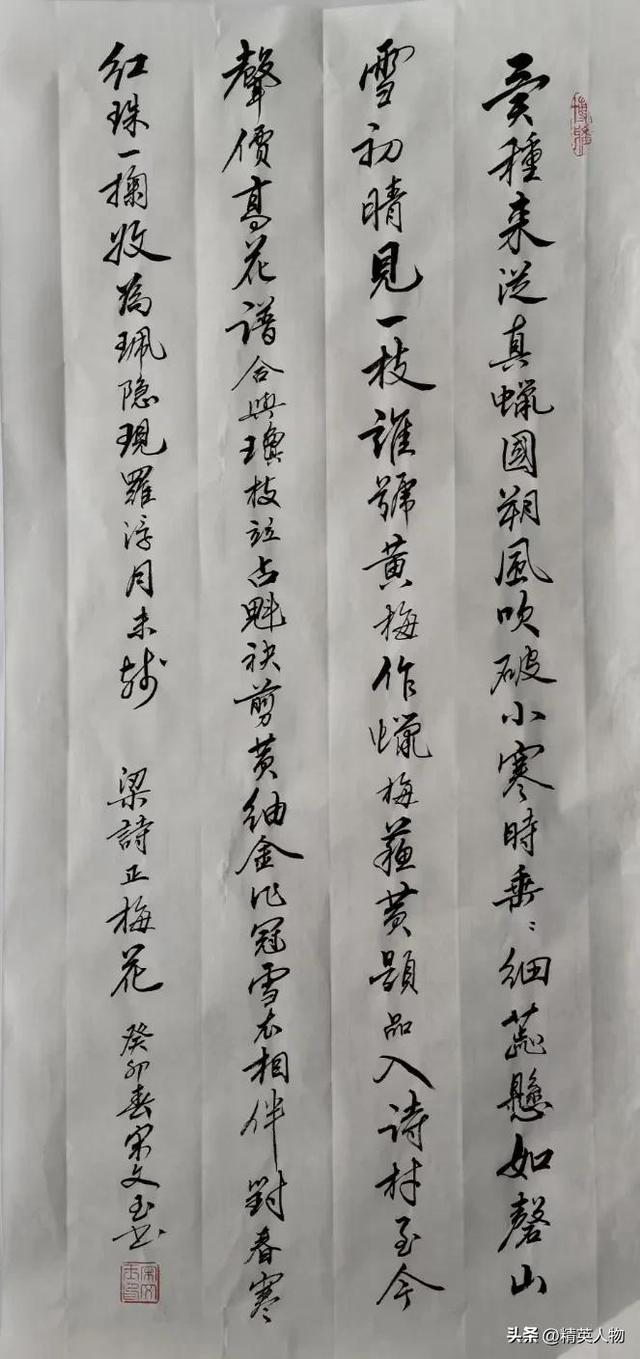 種来從真蠟國朔風吹破小寒時垂〻細蕊懸如磬山
雪初晴見一枝誰號黄梅作蠟梅蘇黄題品入詩材至今
聲價高花譜合與瓊枝並占魁袂剪黄紬金作冠雪衣相伴對春寒
紅珠一掬收為珮隐現羅浮月未殘
梁詩正梅花 癸卯春宋文玉书
頭条@精英人物